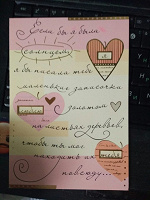 Если бы я была
солнцем,
я
бы писала тебе
маленькие записочки
золотом
на листьях деревьев,
чтобы ты мог
находить их
повсюду...